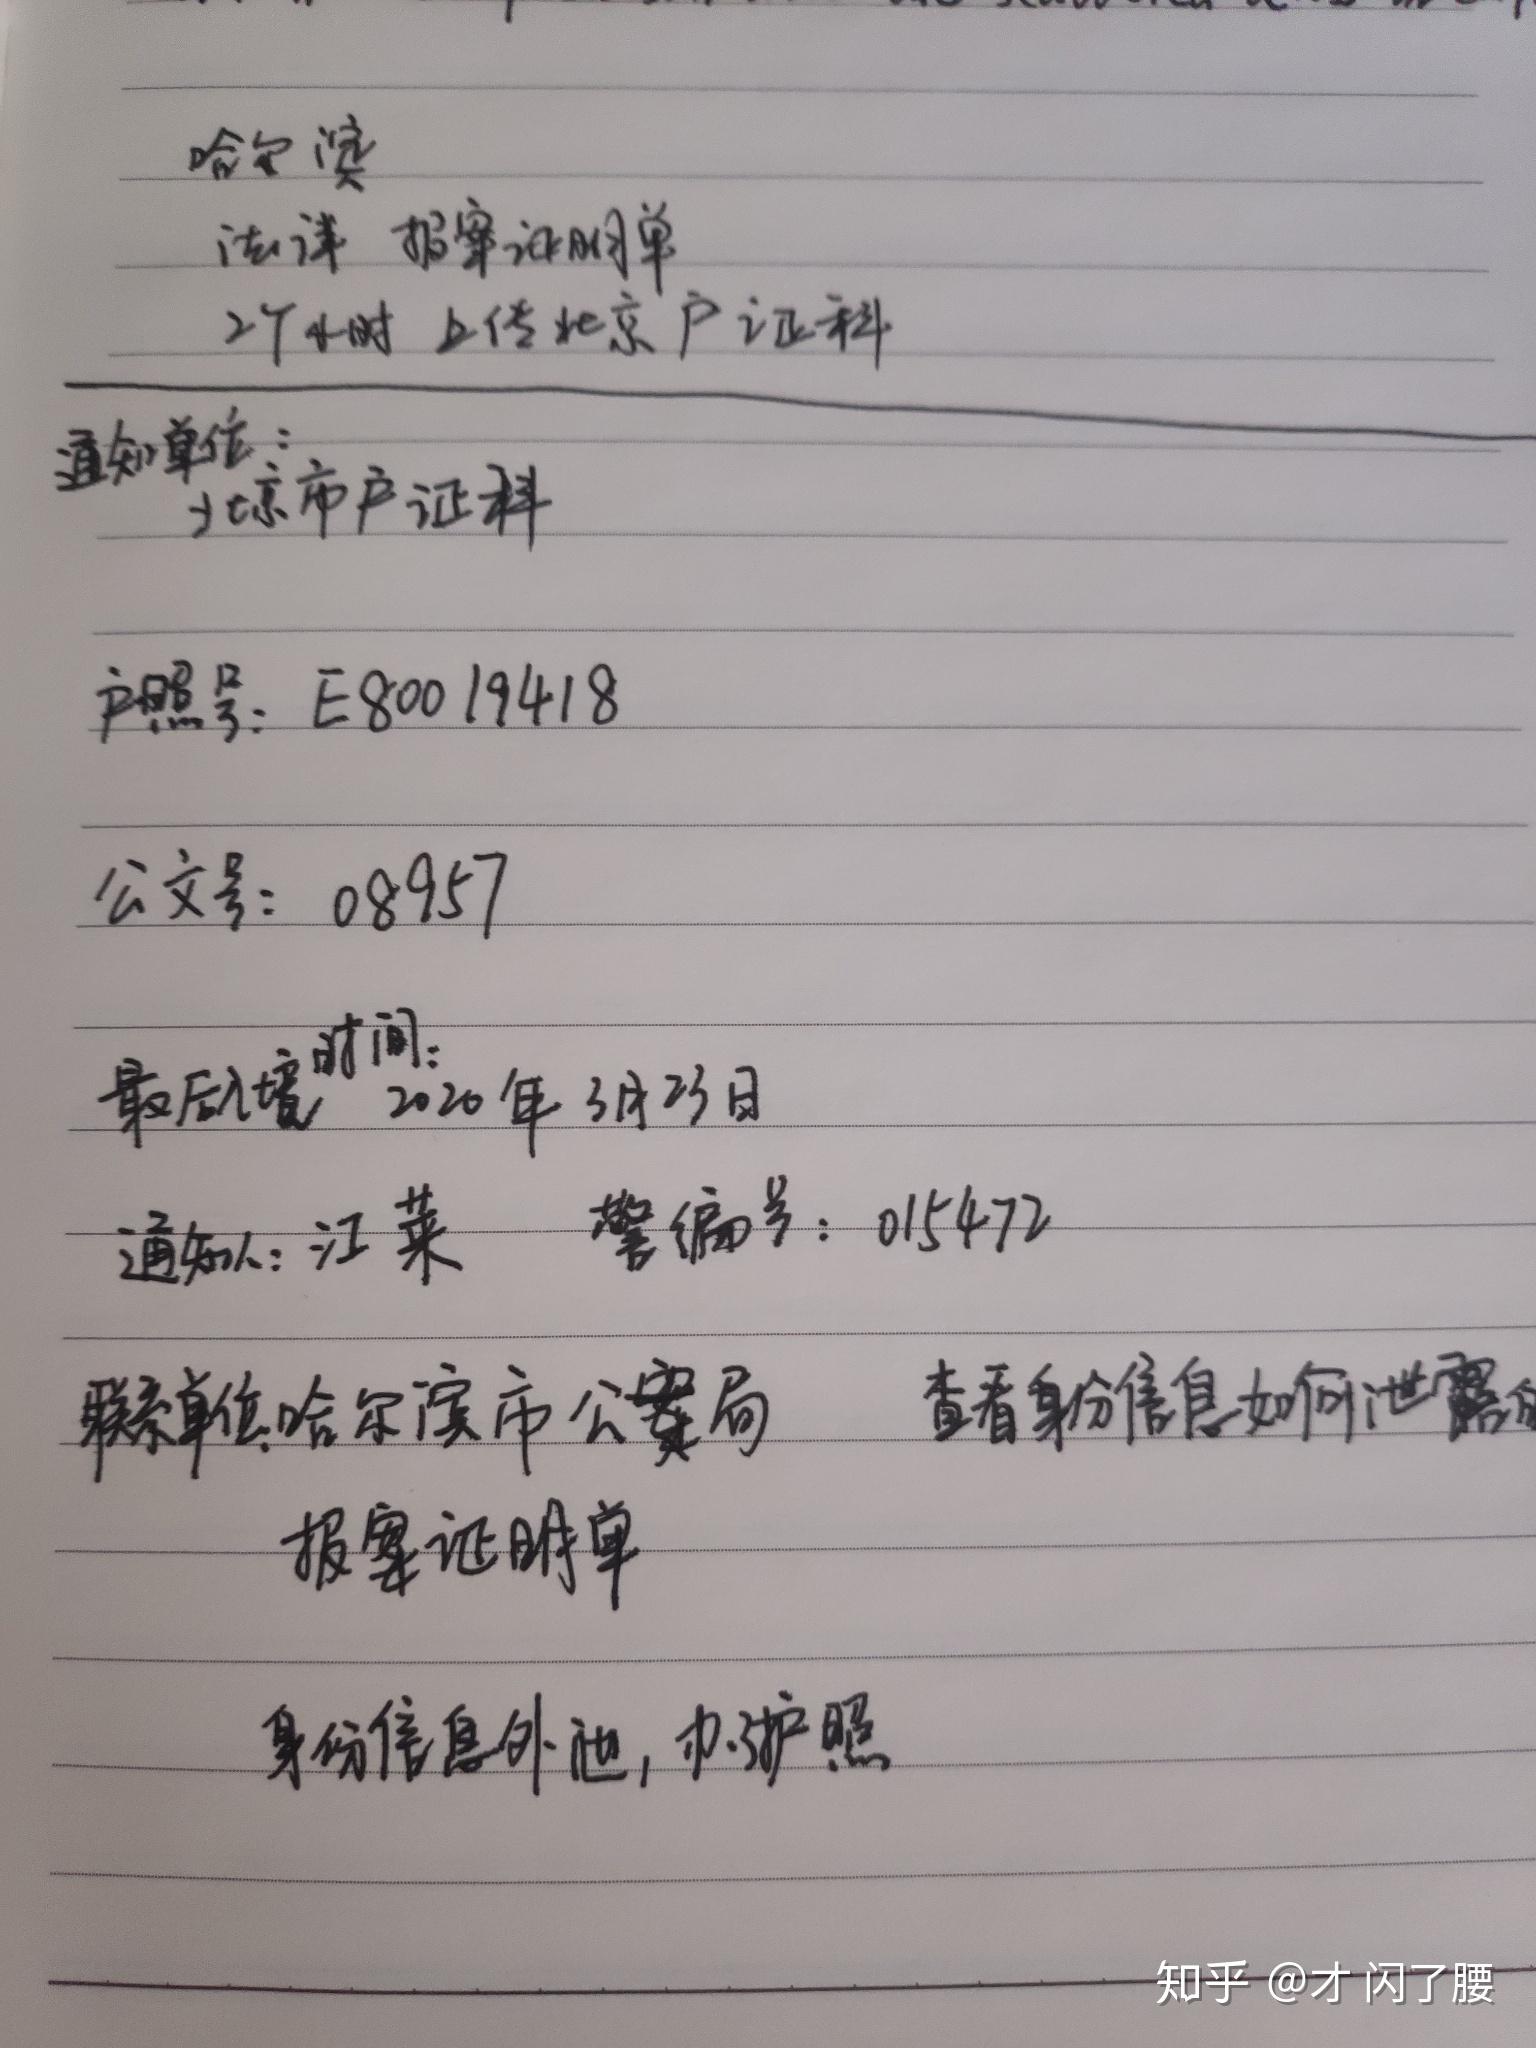 哈尔滨
法详 报案证明单
24小时 上传北京户证科
通知单位:
北京市户证科
户照号: E80019418
公文号: 08957
最后入境时间:
2020年3月23日
通知人: 江菜 警编号: 015472
联系单位:哈尔滨市公案局 查看身份信息如何泄露的
报案证明单
身份信息外泄, 办护照
知乎 @才 闪了腰